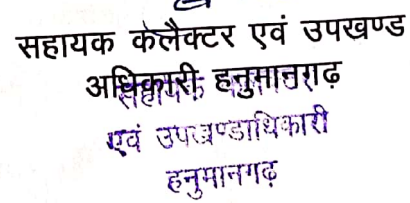 सहायक कलैक्टर एवं उपखण्ड
अधिकारी हनुमानगढ़
एवं उपखण्डाधिकारी
हनुमानगढ़